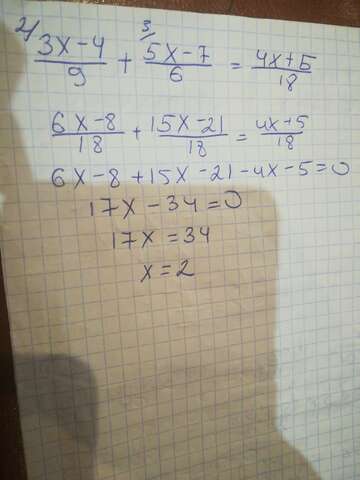 2/ 3x-4/9 + 3/ 5x-7/6 = 4x+5/18
6x-8/18 + 15x-21/18 = 4x+5/18
6x-8+15x-21-4x-5=0
17x-34=0
17x=34
x=2